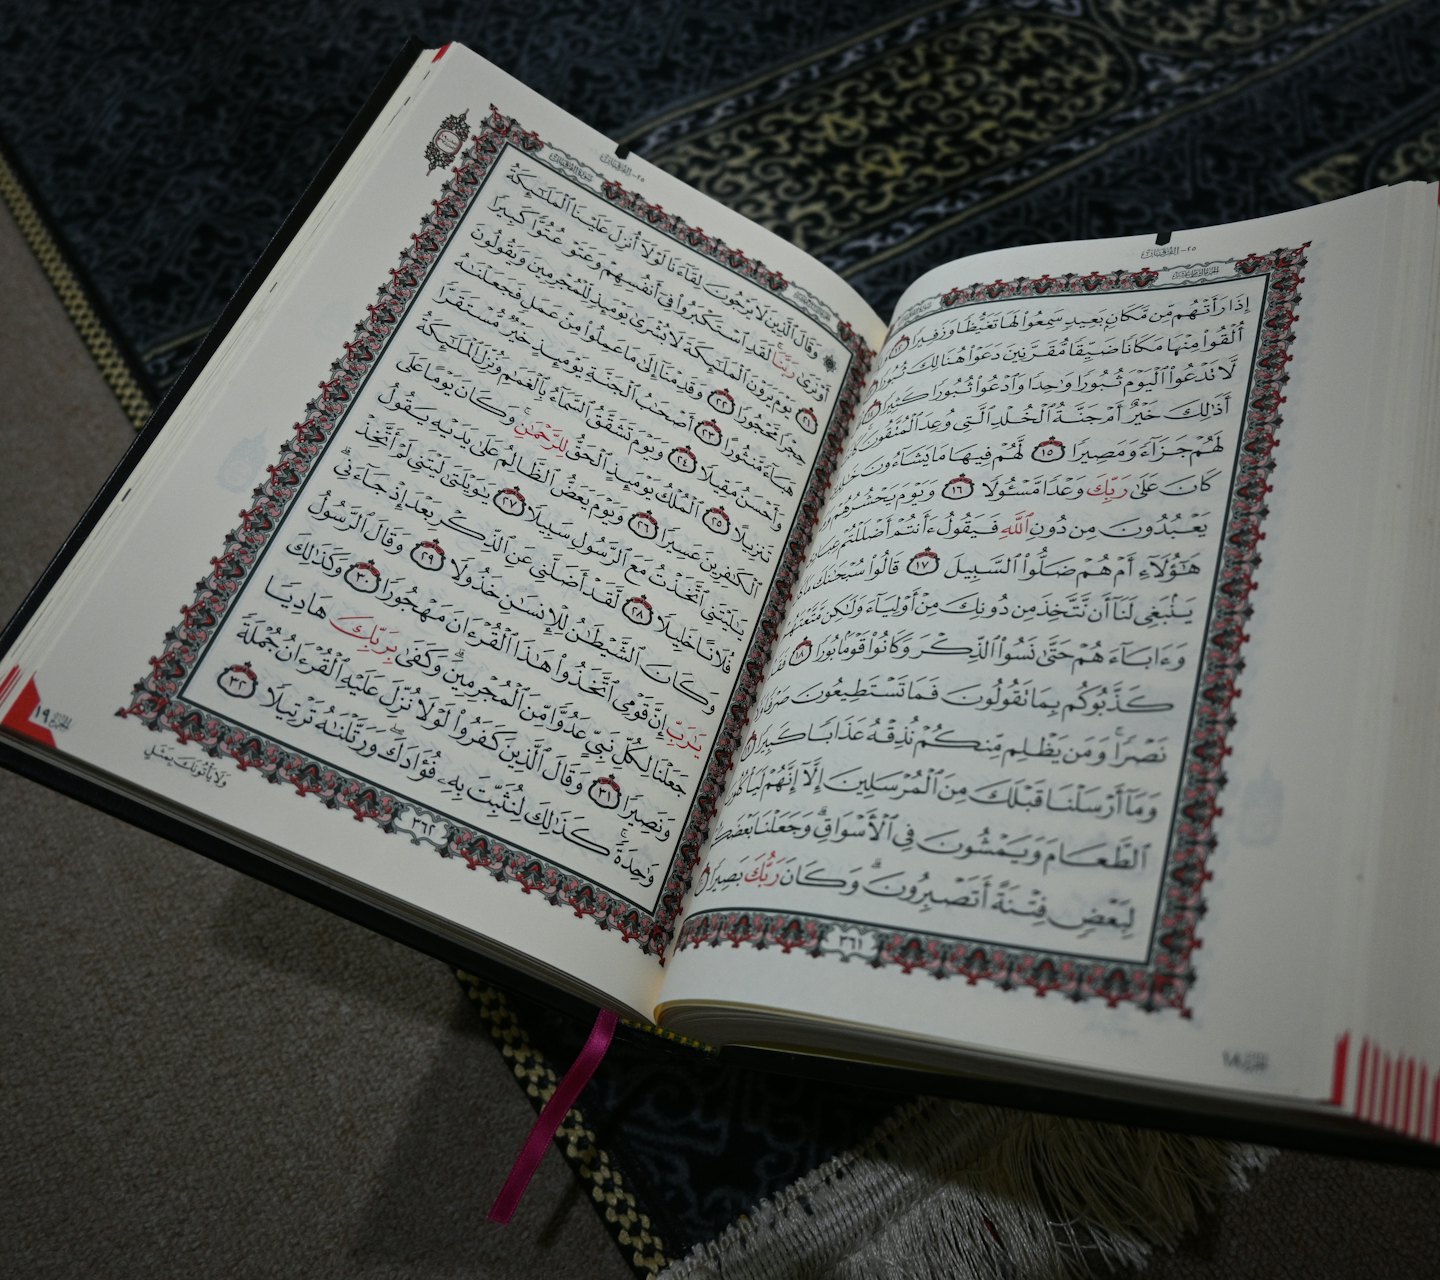 ٢٥-الفرقان
إِذَا رَأَتْهُم مِّن مَّكَانٍ بَعِيدٍ سَمِعُوا۟ لَهَا تَغَيُّظًا وَزَفِيرًا ١٢
أُلْقُوا۟ مِنْهَا مَكَانًا ضَيِّقًا مُّقَرَّنِينَ دَعَوْا۟ هُنَالِكَ ثُبُورًا
لَّا تَدْعُوا۟ ٱلْيَوْمَ ثُبُورًا وَٰحِدًا وَٱدْعُوا۟ ثُبُورًا كَثِيرًا
أَذَٰلِكَ خَيْرٌ أَمْ جَنَّةُ ٱلْخُلْدِ ٱلَّتِى وُعِدَ ٱلْمُتَّقُونَ
لَهُمْ جَزَآءً وَمَصِيرًا ١٥ لَّهُمْ فِيهَا مَا يَشَآءُونَ
كَانَ عَلَىٰ رَبِّكَ وَعْدًا مَّسْـُٔولًا ١٦ وَيَوْمَ يَحْشُرُهُمْ
يَعْبُدُونَ مِن دُونِ ٱللَّهِ فَيَقُولُ ءَأَنتُمْ أَضْلَلْتُمْ
هَٰٓؤُلَآءِ أَمْ هُمْ ضَلُّوا۟ ٱلسَّبِيلَ ١٧ قَالُوا۟ سُبْحَٰنَكَ
يَنۢبَغِى لَنَآ أَن نَّتَّخِذَ مِن دُونِكَ مِنْ أَوْلِيَآءَ وَلَٰكِن مَّتَّعْتَهُمْ
وَءَابَآءَهُمْ حَتَّىٰ نَسُوا۟ ٱلذِّكْرَ وَكَانُوا۟ قَوْمًۢا بُورًا ١٨
كَذَّبُوكُم بِمَا تَقُولُونَ فَمَا تَسْتَطِيعُونَ صَرْفًا
نَصْرًا ۚ وَمَن يَظْلِم مِّنكُمْ نُذِقْهُ عَذَابًا كَبِيرًا
وَمَآ أَرْسَلْنَا قَبْلَكَ مِنَ ٱلْمُرْسَلِينَ إِلَّآ إِنَّهُمْ لَيَأْكُلُونَ
ٱلطَّعَامَ وَيَمْشُونَ فِى ٱلْأَسْوَاقِ ۗ وَجَعَلْنَا بَعْضَكُمْ
لِبَعْضٍ فِتْنَةً أَتَصْبِرُونَ ۗ وَكَانَ رَبُّكَ بَصِيرًا
٣٦١
الجزء ١٨
٢٥-الفرقان
سورة الفرقان
وَقَالَ ٱلَّذِينَ لَا يَرْجُونَ لِقَآءَنَا لَوْلَآ أُنزِلَ عَلَيْنَا ٱلْمَلَٰٓئِكَةُ
أَوْ نَرَىٰ رَبَّنَا ۗ لَقَدِ ٱسْتَكْبَرُوا۟ فِىٓ أَنفُسِهِمْ وَعَتَوْ عُتُوًّا كَبِيرًا
٢١ يَوْمَ يَرَوْنَ ٱلْمَلَٰٓئِكَةَ لَا بُشْرَىٰ يَوْمَئِذٍ لِّلْمُجْرِمِينَ وَيَقُولُونَ
حِجْرًا مَّحْجُورًا ٢٢ وَقَدِمْنَآ إِلَىٰ مَا عَمِلُوا۟ مِنْ عَمَلٍ فَجَعَلْنَٰهُ
هَبَآءً مَّنثُورًا ٢٣ أَصْحَٰبُ ٱلْجَنَّةِ يَوْمَئِذٍ خَيْرٌ مُّسْتَقَرًّا
وَأَحْسَنُ مَقِيلًا ٢٤ وَيَوْمَ تَشَقَّقُ ٱلسَّمَآءُ بِٱلْغَمَٰمِ وَنُزِّلَ ٱلْمَلَٰٓئِكَةُ
تَنزِيلًا ٢٥ ٱلْمُلْكُ يَوْمَئِذٍ ٱلْحَقُّ لِلرَّحْمَٰنِ ۚ وَكَانَ يَوْمًا عَلَى
ٱلْكَٰفِرِينَ عَسِيرًا ٢٦ وَيَوْمَ يَعَضُّ ٱلظَّالِمُ عَلَىٰ يَدَيْهِ يَقُولُ
يَٰلَيْتَنِى ٱتَّخَذْتُ مَعَ ٱلرَّسُولِ سَبِيلًا ٢٧ يَٰوَيْلَتَىٰ لَيْتَنِى لَمْ أَتَّخِذْ
فُلَانًا خَلِيلًا ٢٨ لَّقَدْ أَضَلَّنِى عَنِ ٱلذِّكْرِ بَعْدَ إِذْ جَآءَنِى ۗ
وَكَانَ ٱلشَّيْطَٰنُ لِلْإِنسَٰنِ خَذُولًا ٢٩ وَقَالَ ٱلرَّسُولُ
يَٰرَبِّ إِنَّ قَوْمِى ٱتَّخَذُوا۟ هَٰذَا ٱلْقُرْءَانَ مَهْجُورًا ٣٠ وَكَذَٰلِكَ
جَعَلْنَا لِكُلِّ نَبِىٍّ عَدُوًّا مِّنَ ٱلْمُجْرِمِينَ ۗ وَكَفَىٰ بِرَبِّكَ هَادِيًا
وَنَصِيرًا ٣١ وَقَالَ ٱلَّذِينَ كَفَرُوا۟ لَوْلَا نُزِّلَ عَلَيْهِ ٱلْقُرْءَانُ جُمْلَةً
وَٰحِدَةً ۚ كَذَٰلِكَ لِنُثَبِّتَ بِهِۦ فُؤَادَكَ ۖ وَرَتَّلْنَٰهُ تَرْتِيلًا ٣٢
٣٦٢
وَلَا يَأْتُونَكَ بِمَثَلٍ
الجزء ١٩